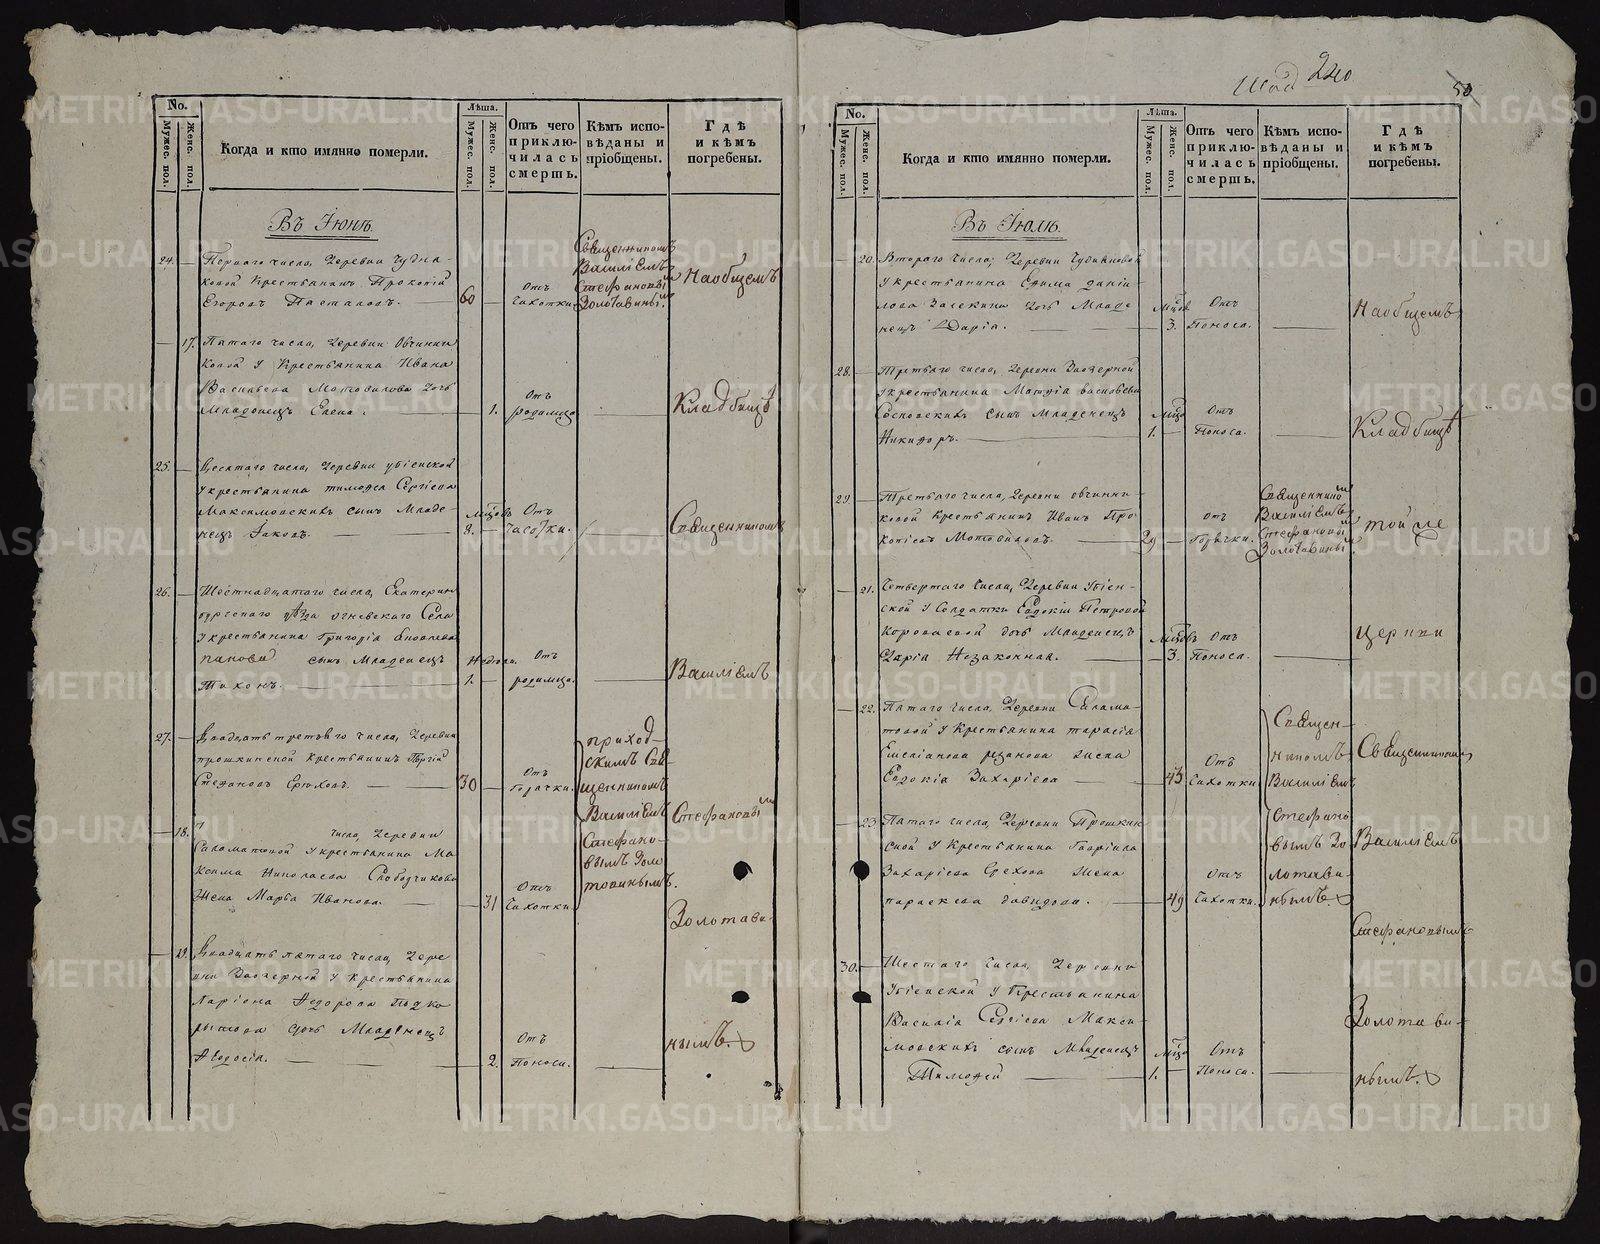 No.
Мужес. пол.
Женс. пол.
Когда и кто имянно померли.
Лѣта.
Мужес. пол.
Женс. пол.
Отъ чего
приклю-
чилась
смерть.
Кѣмъ испо-
вѣданы и
пріобщены.
Гдѣ
и кѣмъ
погребены.
Въ Іюнѣ.
24. Перваго числа, Деревни Чудна-
ковой Крестьянинъ Прокопій
Егоровъ 60
Отъ
Чахотки
Священникомъ
Василіемъ
Стефановы
Золотавины
На общемъ
17. Пятаго числа, Деревни Овчинни
ковой у Крестьянина Ивана
Васильева Мотовилова дочь
Младенецъ Елена. 1.
Отъ
родимца
Кладбищѣ
25. Десятаго числа, Деревни Убіенской
у крестьянина Тимофея Сергіева
Максимовскихъ сынъ Младе-
нецъ Іаковъ. 8.
Отъ
Священникомъ
26. Шестнадцатаго числа, Екатерин
бургскаго уѣзда Огневскаго Села
у крестьянина Григорія Яковлева
Панова сынъ Младенецъ
Тихонъ. Недели 1.
Отъ
родимца.
Василіемъ
27. Двадцать третьяго числа, Деревни
Прошкинской Крестьянинъ
Стефановъ 30
Отъ
Горячки.
приход-
скимъ Свя-
щенникомъ
Василіемъ
Стефано-
вымъ Золо
товинымъ.
Стефановы
18. числа, Деревни
Саламатовой у крестьянина Ма
ксима Николаева Слободчикова
Жена Марѳа Иванова. 31
Отъ
Чахотки.
Золотави-
19. Двадцать пятаго числа, Дере
вни Заозерной у крестьянина
Ларіона Ѳедорова Подко
рытова дочь Младенецъ
Ѳедосія. 2.
Отъ
Поноса.
нымъ.
240
50
No.
Мужес. пол.
Женс. пол.
Когда и кто имянно померли.
Лѣта.
Мужес. пол.
Женс. пол.
Отъ чего
приклю-
чилась
смерть.
Кѣмъ испо-
вѣданы и
пріобщены.
Гдѣ
и кѣмъ
погребены.
Въ Іюлѣ.
20. Втораго числа, Деревни
у крестьянина Ефима Даніи-
лова дочь Младе
нецъ Дарія. 3.
Отъ
Поноса.
На общемъ
28. Третьяго числа, Деревни Заозерной
у крестьянина Матѳія
Сосновскихъ сынъ Младенецъ
Никифоръ. 1.
Отъ
Поноса.
Кладбищѣ
29. Третьяго числа, Деревни Овчинни-
ковой Крестьянинъ Иванъ Про
копіевъ Мотовиловъ. 29
отъ
Горячки.
Священникомъ
Василіемъ
Стефановы
Золотавины
той же
21. Четвертаго числа, Деревни Убіен-
ской у Солдатки Евдокіи Петровой
дочь Младенецъ
Дарія Незаконная. 3.
Отъ
Поноса.
Церкви
22. Пятаго числа, Деревни Салама-
товой у Крестьянина Тарасія
Емеліанова
Евдокія Захаріева 43
Отъ
Чахотки
Священ-
никомъ
Василіемъ
Священникомъ
23. Пятаго числа, Деревни Прошкин
ской у Крестьянина Гавріила
Захаріева Жена
Параскева Давидова. 49
Отъ
Чахотки.
Стефано
вымъ Зо
лотави-
нымъ.
Василіемъ
Стефановымъ
30. Шестаго числа, Деревни
Убіенской у Крестьянина
Василія Сергіева Макси-
мовскихъ сынъ Младенецъ
Тимофей 1.
Отъ
Поноса.
Золотави-
нымъ.
METRIKI.GASO-URAL.RU